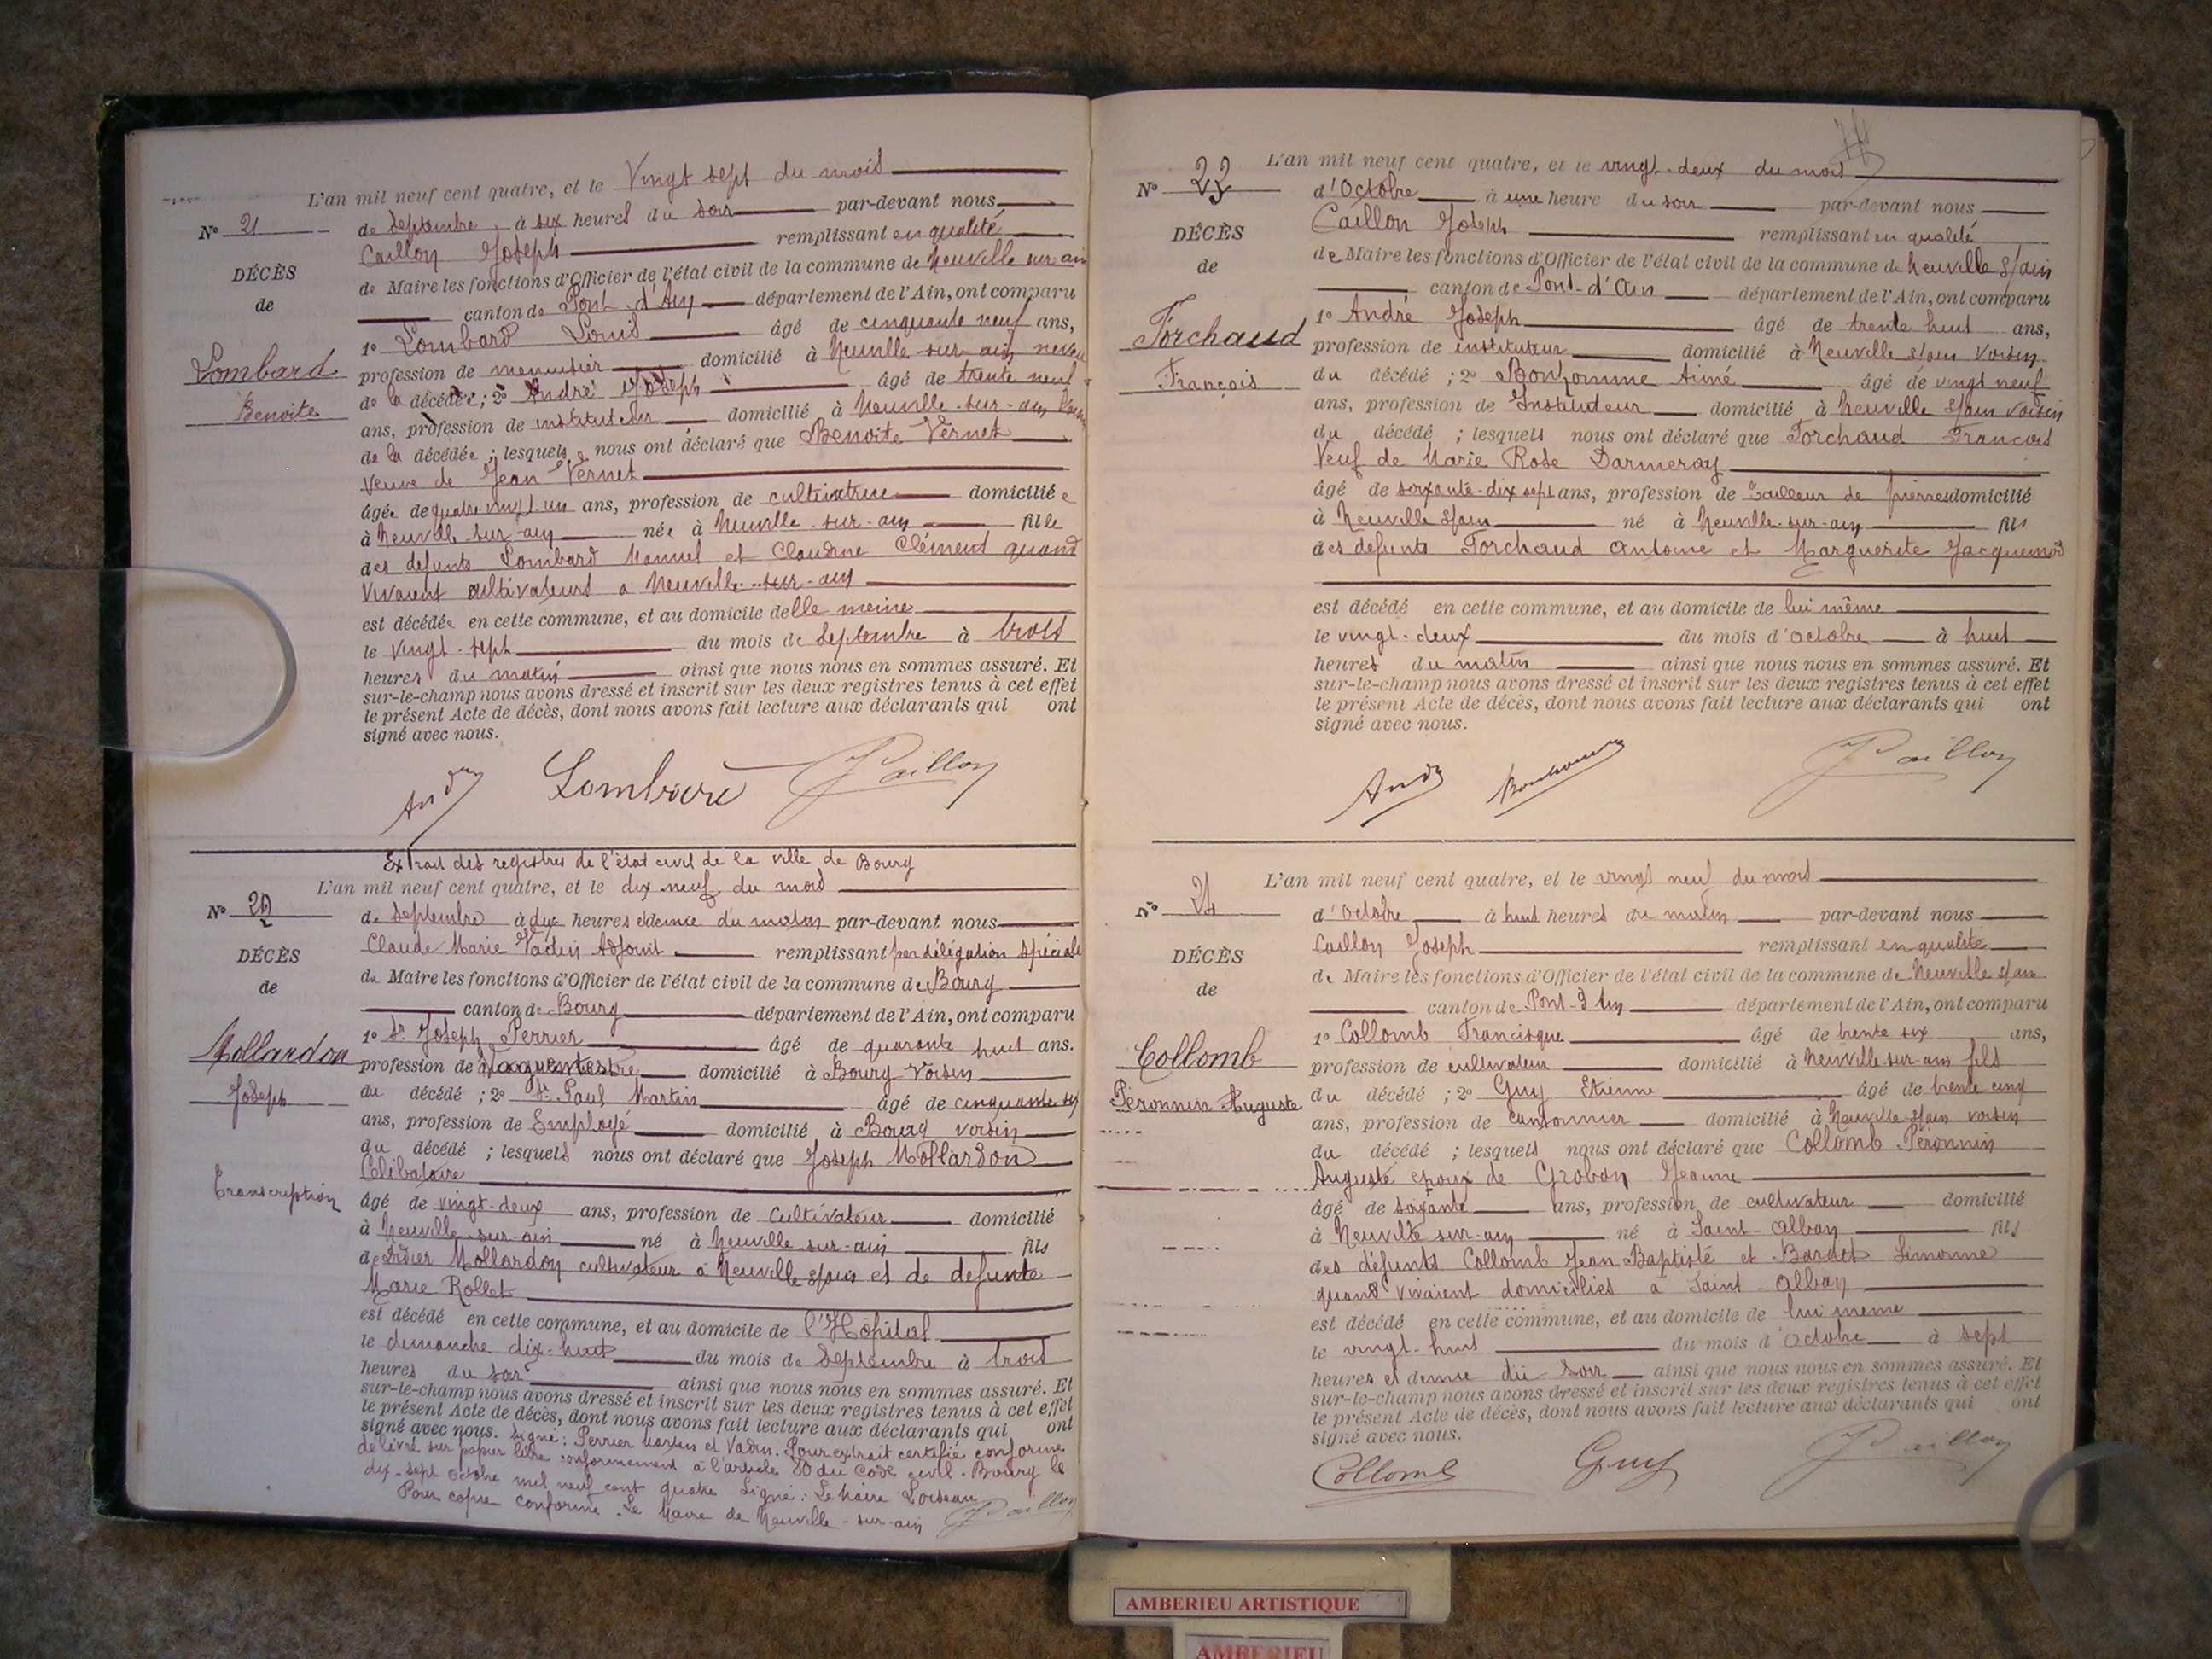 L'an mil neuf cent quatre, et le Vingt sept du mois
N° 21
de Septembre, à six heures du soir par-devant nous
Caillon Joseph remplissant en qualité
DÉCÈS
de Maire les fonctions d'Officier de l'état civil de la commune de Neuville sur ain
de
canton de Pont-d'Ain département de l'Ain, ont comparu
1° Lombard Louis âgé de cinquante neuf ans,
Lombard
profession de menuisier domicilié à Neuville-sur-ain neveu
de la décédée; 2° André Joseph âgé de trente neuf
Benoite
ans, profession de instituteur domicilié à Neuville-sur-ain
de la décédée; lesquels nous ont déclaré que Benoite Vernet
Veuve de Jean Vernet
âgée de quatre vingt un ans, profession de cultivatrice domiciliée
à Neuville-sur-ain née à Neuville-sur-ain fille
des defunts Lombard Manuel et Claudine Clément quand
vivaient cultivateurs a Neuville-sur-ain
est décédée en cette commune, et au domicile delle meme
le vingt-sept du mois de Septembre à trois
heures du matin ainsi que nous nous en sommes assuré. Et
sur-le-champ nous avons dressé et inscrit sur les deux registres tenus à cet effet
le présent Acte de décès, dont nous avons fait lecture aux déclarants qui ont
signé avec nous.
André Lombard Caillon
Extrait des registres de l'état civil de la ville de Bourg
L'an mil neuf cent quatre, et le dix-neuf du mois
N° 22
de Septembre à dix heures et demie du matin par-devant nous
Claude Marie Vadin Adjoint remplissant par délégation spéciale
DÉCÈS
du Maire les fonctions d'Officier de l'état civil de la commune de Bourg
de
canton de Bourg département de l'Ain, ont comparu
1° Sr Joseph Perrier âgé de quarante huit ans.
Mollardon
profession de domicilié à Bourg Voisin
Joseph
du décédé; 2° Sr Paul Martin âgé de cinquante six
ans, profession de Employé domicilié à Bourg voisin
du décédé; lesquels nous ont déclaré que Joseph Mollardon
Célibataire
Transcription
âgé de vingt-deux ans, profession de Cultivateur domicilié
à Neuville-sur-ain né à Neuville-sur-ain fils
de Didier Mollardon cultivateur a Neuville s/ain et de defunte
Marie Rollet
est décédé en cette commune, et au domicile de l'Hôpital
le demanche dix-huit du mois de Septembre à trois
heures du soir ainsi que nous nous en sommes assuré. Et
sur-le-champ nous avons dressé et inscrit sur les deux registres tenus à cet effet
le présent Acte de décès, dont nous avons fait lecture aux déclarants qui ont
signé avec nous. Signé: Perrier Martin et Vadin. Pour extrait certifié conforme
délivré sur papier libre conformement à l'article 80 du Code civil. Bourg le
dix-sept octobre mil neuf cent quatre Signé: Le Maire Loiseau
Pour copie conforme. Le Maire de Neuville-sur-ain Caillon
L'an mil neuf cent quatre, et le vingt-deux du mois
N° 23
d'Octobre à une heure du soir par-devant nous
Caillon Joseph remplissant en qualité
DÉCÈS
de Maire les fonctions d'Officier de l'état civil de la commune de Neuville s/ain
de
canton de Pont-d'Ain département de l'Ain, ont comparu
1° André Joseph âgé de trente huit ans,
Forchaud
profession de instituteur domicilié à Neuville s/ain Voisin
François
du décédé; 2° Bonhomme Aimé âgé de vingt neuf
ans, profession de Instituteur domicilié à Neuville s/ain voisin
du décédé; lesquels nous ont déclaré que Forchaud François
Veuf de Marie Rose Darmeray
âgé de soixante-dix sept ans, profession de tailleur de pierres domicilié
à Neuville s/ain né à Neuville-sur-ain fils
des defunts Forchaud Antoine et Marguerite Jacquemod
est décédé en cette commune, et au domicile de lui même
le vingt-deux du mois d'octobre à huit
heures du matin ainsi que nous nous en sommes assuré. Et
sur-le-champ nous avons dressé et inscrit sur les deux registres tenus à cet effet
le présent Acte de décès, dont nous avons fait lecture aux déclarants qui ont
signé avec nous.
André Bonhomme Caillon
L'an mil neuf cent quatre, et le vingt neuf du mois
N° 24
d'Octobre à huit heures du matin par-devant nous
Caillon Joseph remplissant en qualité
DÉCÈS
de Maire les fonctions d'Officier de l'état civil de la commune de Neuville s/ain
de
canton de Pont-d'Ain département de l'Ain, ont comparu
1° Collomb Francisque âgé de trente six ans,
Collomb
profession de cultivateur domicilié à Neuville sur ain fils
Péronnin Auguste
du décédé; 2° Guy Etienne âgé de trente cinq
ans, profession de cantonnier domicilié à Neuville s/ain voisin
du décédé; lesquels nous ont déclaré que Collomb Péronnin
Auguste epoux de Grobon Jeanne
âgé de soixante ans, profession de cultivateur domicilié
à Neuville sur-ain né à Saint-Alban fils
des défunts Collomb Jean Baptiste et Bardet Simonne
quand vivaient domiciliés a Saint-Alban
est décédé en cette commune, et au domicile de lui meme
le vingt-huit du mois d'Octobre à sept
heures et demie du soir ainsi que nous nous en sommes assuré. Et
sur-le-champ nous avons dressé et inscrit sur les deux registres tenus à cet effet
le présent Acte de décès, dont nous avons fait lecture aux déclarants qui ont
signé avec nous.
Collomb Guy Caillon
AMBERIEU ARTISTIQUE
AMBERIEU